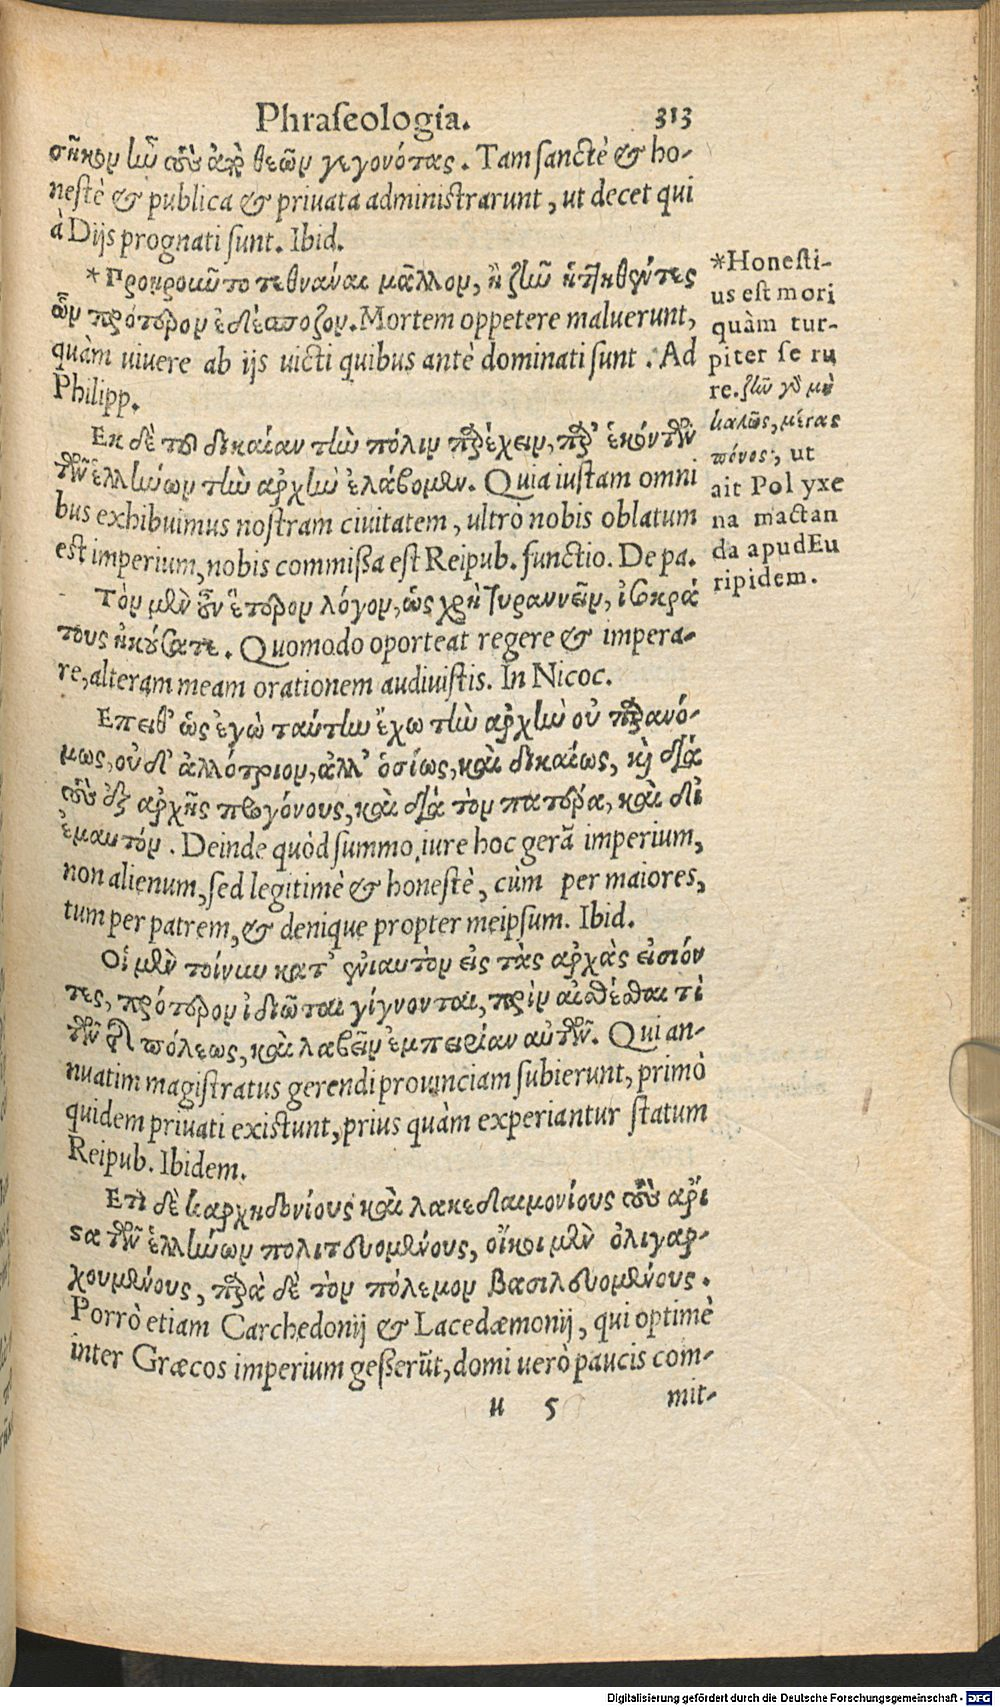 Phraſeologia. 313
σῆκον ἦν τοὺς ἀπὸ θεῶν γεγονότας. Tam ſanctè & ho-
neſtè & publica & priuata adminiſtrarunt, ut decet qui
à Dijs prognati ſunt. Ibid.
*Προηροῦντο τεθνάναι μᾶλλον, ἢ ζῆν ἡττηθέντες
ὧν πρότερον ἐδέσποζον. Mortem oppetere maluerunt,
quàm vivere ab ijs victi quibus antè dominati ſunt. Ad
Philipp.
Εκ δὲ τοῦ δικαίαν τὴν πόλιν παρέχειν, παρ' ἑκόντων
τῶν ἑλλήνων τὴν ἀρχὴν ἐλάβομεν. Quia iuſtam omni
bus exhibuimus noſtram ciuitatem, ultrò nobis oblatum
eſt imperium, nobis commiſſa eſt Reipub. functio. De pa.
Τὸν μὲν οὖν ἕτερον λόγον, ὡς χρὴ τυραννεῖν, ἰσοκρά
τους ἠκούσατε. Quomodo oporteat regere & impera-
re, alteram meam orationem audiuiſtis. In Nicoc.
Επειθ' ὡς ἐγὼ ταύτην ἔχω τὴν ἀρχὴν οὐ παρανό-
μως, οὐδ' ἀλλότριον, ἀλλ' ὁσίως, καὶ δικαίως, κỳ διὰ
τοὺς ἐξ ἀρχῆς προγόνους, καὶ διὰ τὸν πατέρα, καὶ δι
ἐμαυτόν. Deinde quòd ſummo iure hoc gerã imperium,
non alienum, ſed legitimè & honeſtè, cùm per maiores,
tum per patrem, & denique propter meipſum. Ibid.
Οἱ μὲν τοίνυν κατ' ἐνιαυτὸν εἰς τὰς ἀρχὰς εἰσιόν
τες, πρότερον ἰδιῶται γίγνονται, πρὶν αἰσθέσθαι τὶ
τῶν τῆς πόλεως, καὶ λαβεῖν ἐμπειρίαν αὐτῶν. Qui an-
nuatim magiſtratus gerendi prouinciam ſubierunt, primò
quidem priuati exiſtunt, prius quàm experiantur ſtatum
Reipub. Ibidem.
Ετι δὲ καρχηδονίους καὶ λακεδαιμονίους τοὺς ἄρι
ϛα τῶν ἑλλήνων πολιτευομένους, οἴκοι μὲν ὀλιγαρ-
χουμένους, παρὰ δὲ τὸν πόλεμον βασιλευομένους.
Porrò etiam Carchedonij & Lacedæmonij, qui optimè
inter Græcos imperium geſſerũt, domi uerò paucis com-
u 5 mit-
*Honeſti-
us eſt mori
quàm tur-
piter ſe ru
re. ζῆν γὰρ μὴ
καλῶς, μέγας
πόνος, ut
ait Polyxe
na mactan
da apud Eu
ripidem.
Digitalisierung gefördert durch die Deutsche Forschungsgemeinschaft - DFG